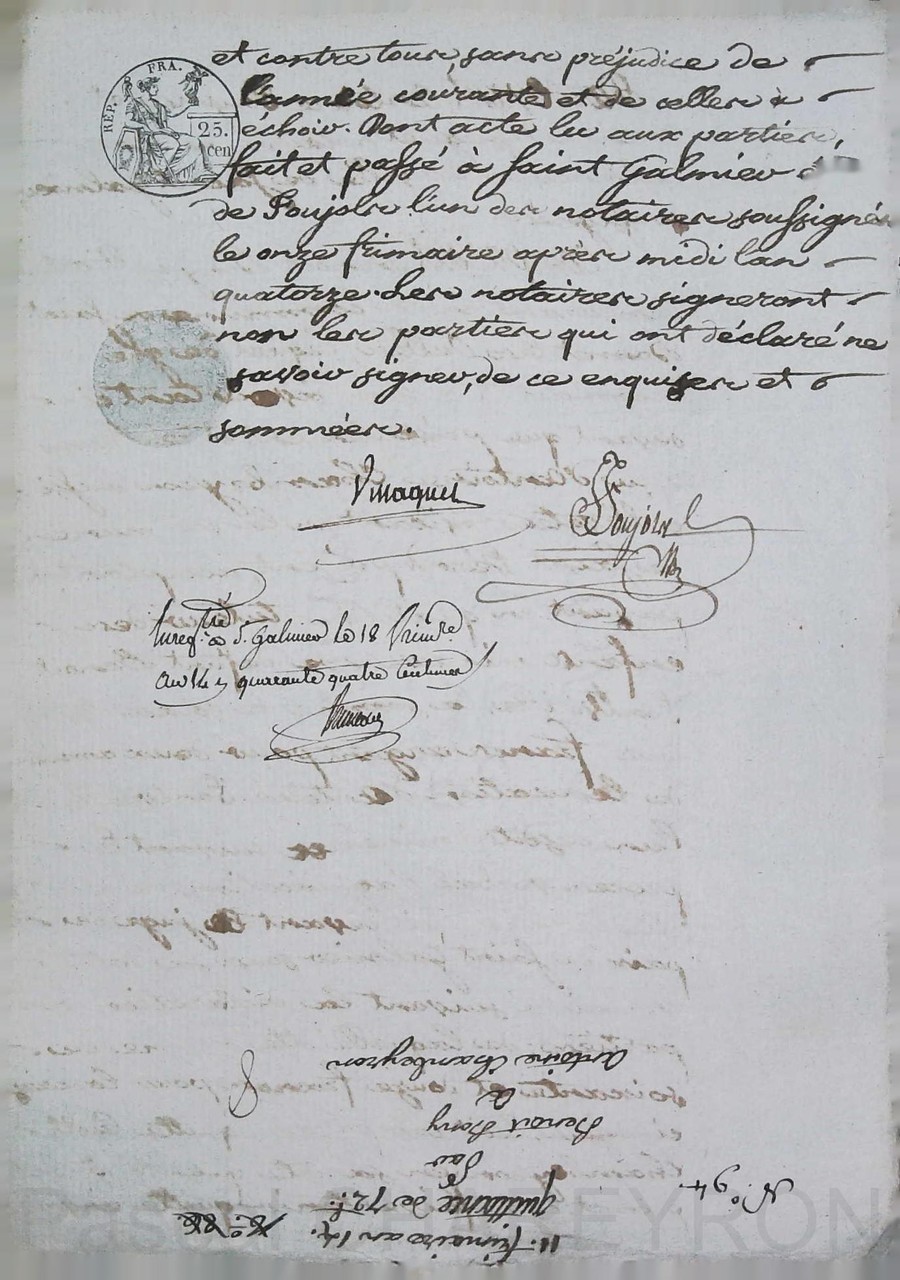 REP. FRA.
25.
cen
et contre tous, sans préjudice de
l'année courante et de celles à
échoir. Dont acte lu aux parties,
fait et passé à Saint Galmier
de Poujols l'un des notaires soussignés
le onze frimaire après midi l'an
quatorze. Les notaires signeront
non les parties qui ont déclaré ne
savoir signer, de ce enquises et
sommées.
Poujols
Enregtré à St. Galmier le 18 frimre
an 14 quarante quatre centimes
11. frimaire an 14.
quittance de 72 f.
Par
Benoit Bony
à
Antoine Chambeyron
N.o 94